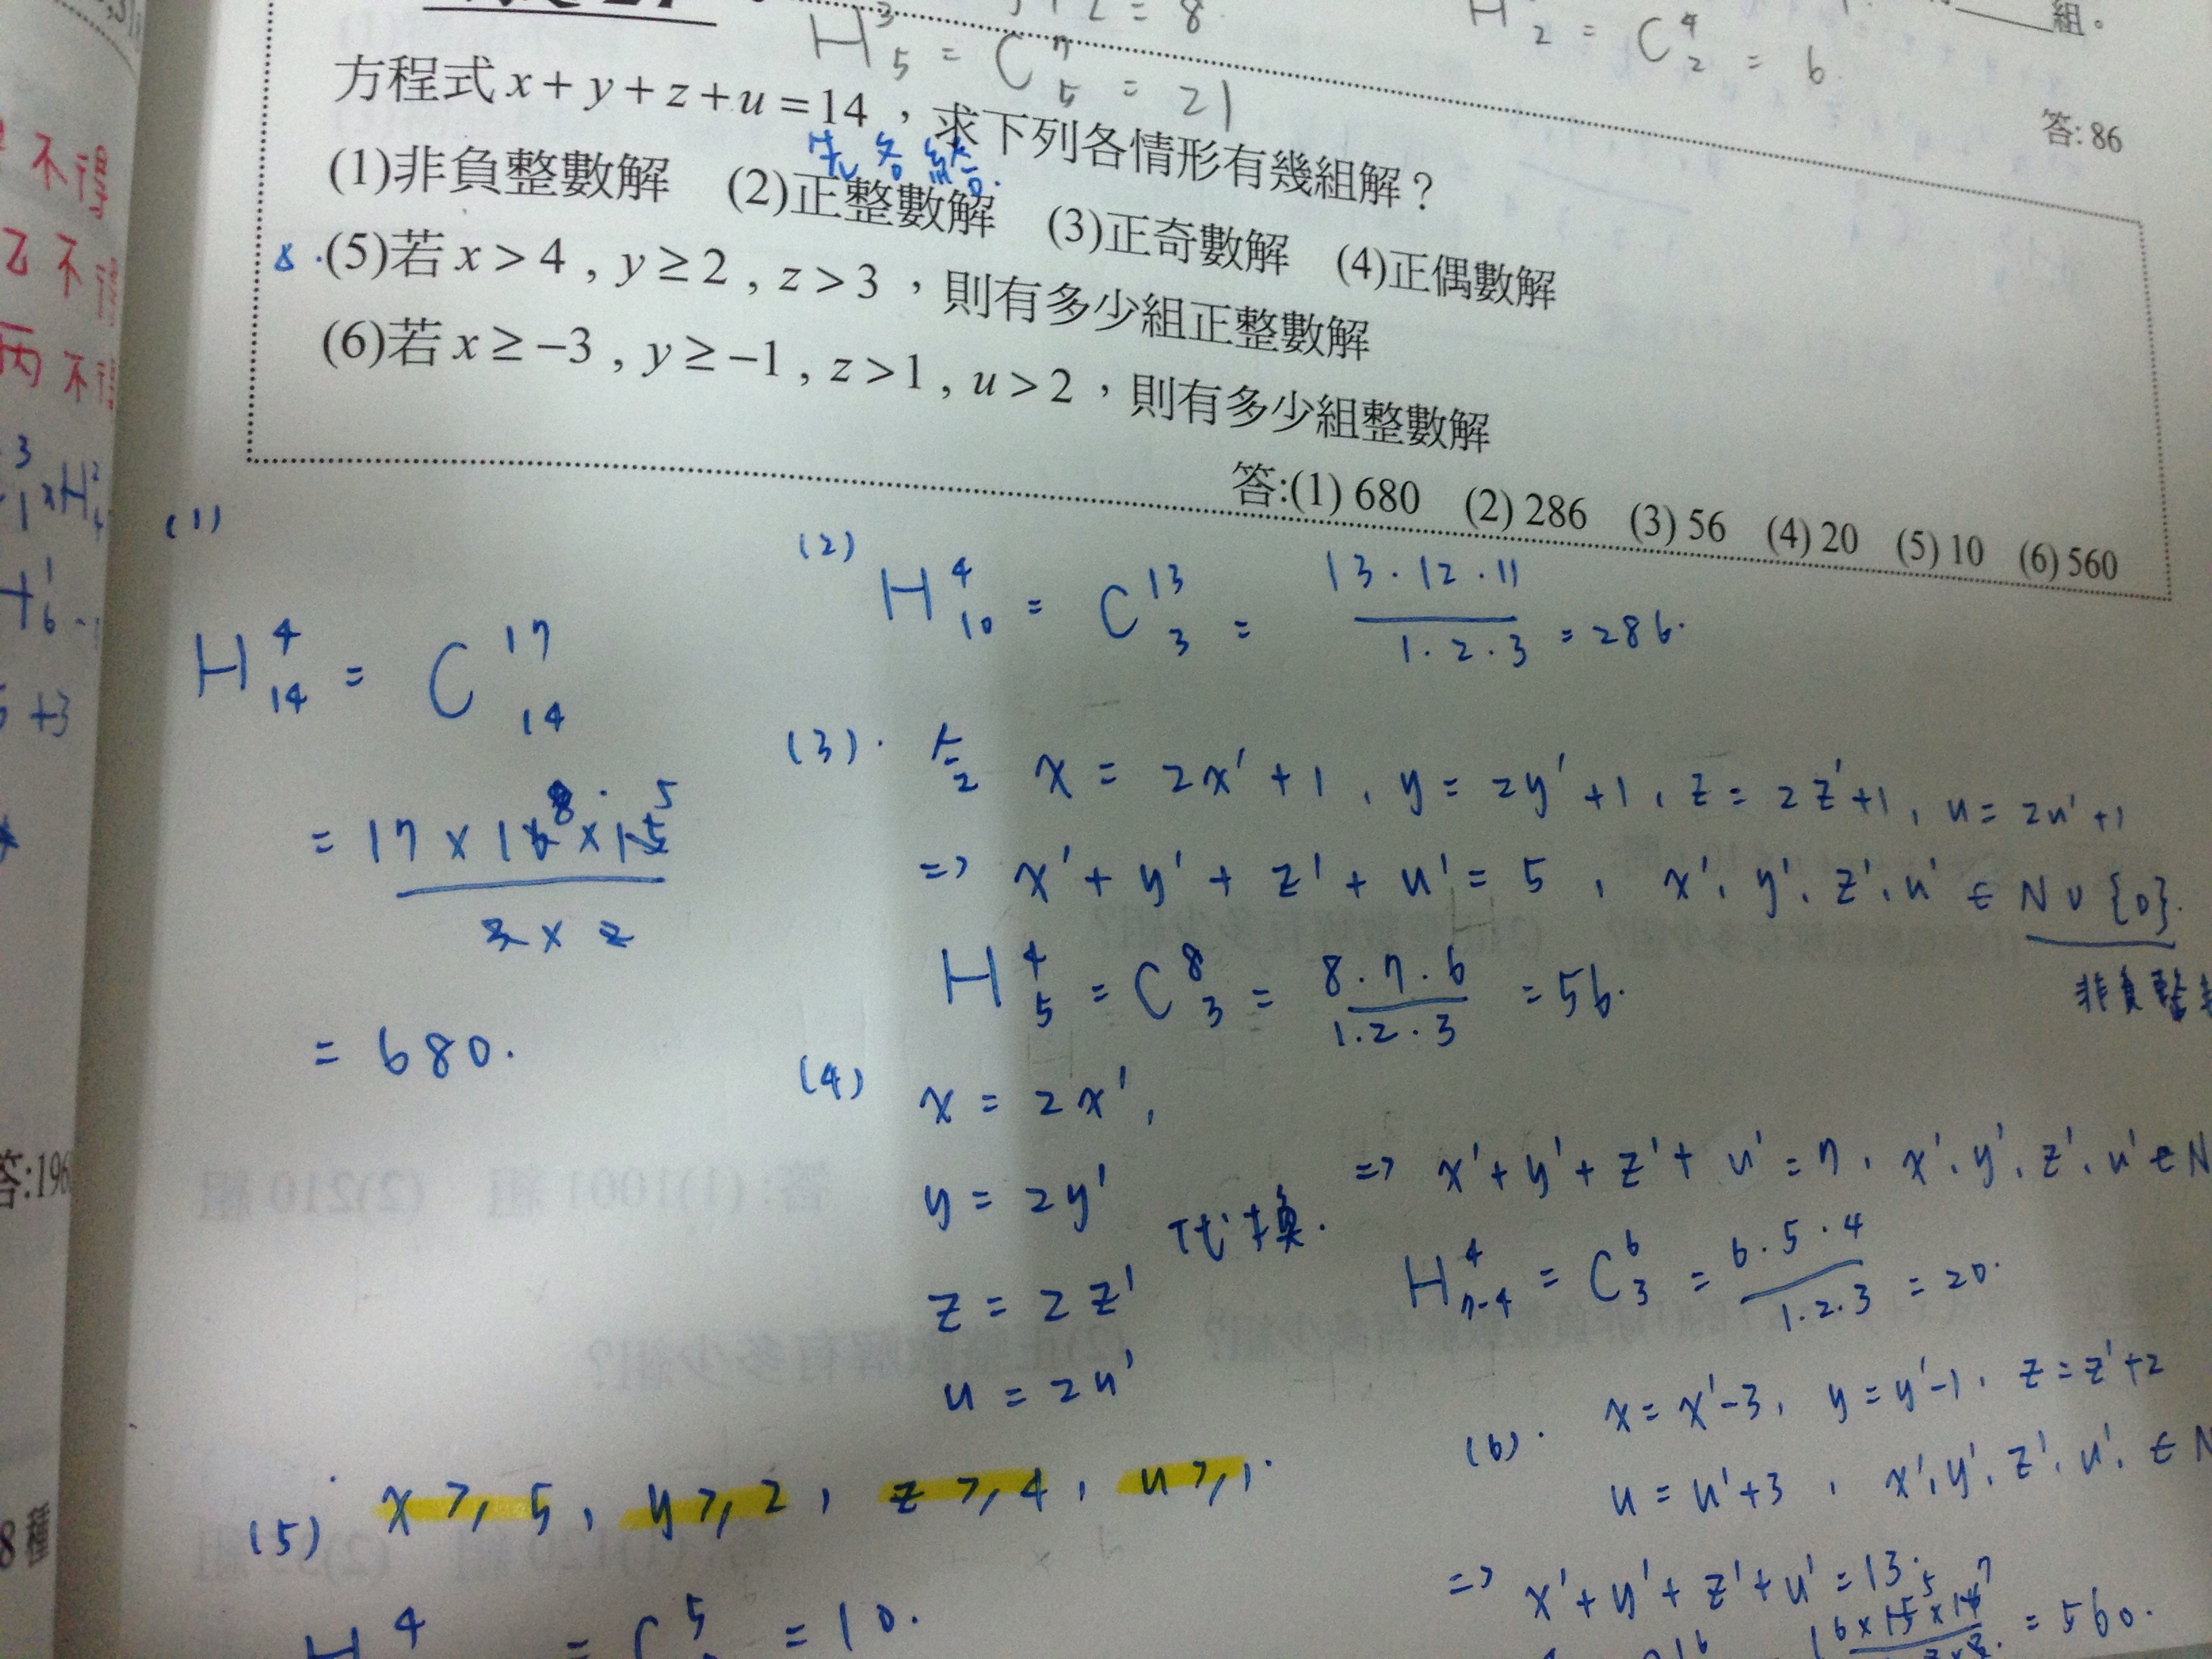 = 8
H³₅ = C⁷₅ = 21
H₂ = C⁴₂ = 6
組。
答: 86
方程式 x + y + z + u = 14，求下列各情形有幾組解？
先各給1個.
(1)非負整數解 (2)正整數解 (3)正奇數解 (4)正偶數解
(5)若 x > 4 , y ≥ 2 , z > 3，則有多少組正整數解
(6)若 x ≥ −3 , y ≥ −1 , z > 1 , u > 2，則有多少組整數解
答:(1) 680 (2) 286 (3) 56 (4) 20 (5) 10 (6) 560
(1)
H⁴₁₄ = C¹⁷₁₄
= 17 × 16 8 × 15 5 / 3 × 2
= 680.
(2) H⁴₁₀ = C¹³₃ = 13 · 12 · 11 / 1 · 2 · 3 = 286.
(3). 令 x = 2x' + 1 , y = 2y' + 1 , z = 2z' + 1 , u = 2u' + 1
=> x' + y' + z' + u' = 5 , x', y', z', u' ∈ N ∪ {0}.
非負整
H⁴₅ = C⁸₃ = 8 · 7 · 6 / 1 · 2 · 3 = 56.
(4) x = 2x' ,
y = 2y'
z = 2z'
u = 2u'
代換.
=> x' + y' + z' + u' = 7 , x', y', z', u' ∈ N
H⁴₇₋₄ = C⁶₃ = 6 · 5 · 4 / 1 · 2 · 3 = 20.
(5) x ≥ 5 , y ≥ 2 , z ≥ 4 , u ≥ 1.
H⁴ = C⁵ = 10.
(6). x = x' − 3 , y = y' − 1 , z = z' + 2
u = u' + 3 , x', y', z', u' ∈ N
=> x' + y' + z' + u' = 13.
16 × 15 5 × 14 7 = 560.
不得
乙不
丙不
+3
答:196
8種